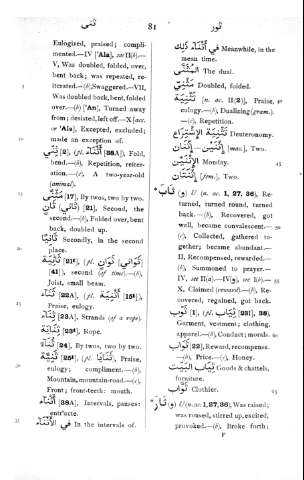 ثنى
81
ثور
Eulogized, praised; compli-
mented.—IV ['Ala], see II(b).—
V, Was doubled, folded, over,
bent back; was repeated, re-
iterated.—(b) Swaggered.—VII,
Was doubled back, bent, folded
over.—(b) ['An], Turned away
from; desisted, left off.—X [acc.
or 'Ala], Excepted, excluded;
made an exception of.
[2], (pl. أَثْنَاء [38A]), Fold,
bend.—(b), Repetition, reiter-
ation.—(c), A two-year-old
(animal).
[17], By twos, two by two.
[21], Second, the
second.—(b), Folded over, bent
back, doubled up.
Secondly, in the second
place.
[21t] (pl.
[41]), second (of time).—(b),
Joist, small beam.
[22A], (pl. [15t]),
Praise, eulogy.
[23A], Strands (of a rope).
[23A], Rope.
[24], By twos, two by two.
[25t], (pl. Praise,
eulogy; compliment.—(b),
Mountain, mountain-road.—(c),
Front; front-teeth: mouth.
[38A], Intervals, pauses:
entr'acte.
In the intervals of.
Meanwhile, in the
mean time.
The dual.
Doubled, folded.
(n. ac. II(2)), Praise,
eulogy.—(b), Dualizing (gram.).
—(c), Repetition.
Deuteronomy.
(mas.), Two.
Monday.
(fem.), Two.
U (n. ac. 1, 27, 36), Re-
turned, turned round, turned
back.—(b), Recovered, got
well, became convalescent.—
(c), Collected, gathered to-
gether; became abundant.—
II, Recompensed, rewarded.—
(b), Summoned to prayer.—
IV, see II(a).—IV(a), see I(b).—
X, Claimed (reward).—(b), Re-
covered, regained, got back.
ثَوْب [1], (pl. ثِيَاب [23t], 38),
Garment, vestment; clothing,
apparel.—(b), Conduct; morals.
ثَوَاب [22], Reward, recompense.
—(b), Price.—(c), Honey.
Goods & chattels,
furniture.
Clothier.
U (n. ac. 1, 27, 36), Was raised;
was roused, stirred up, excited,
provoked.—(b), Broke forth:
F